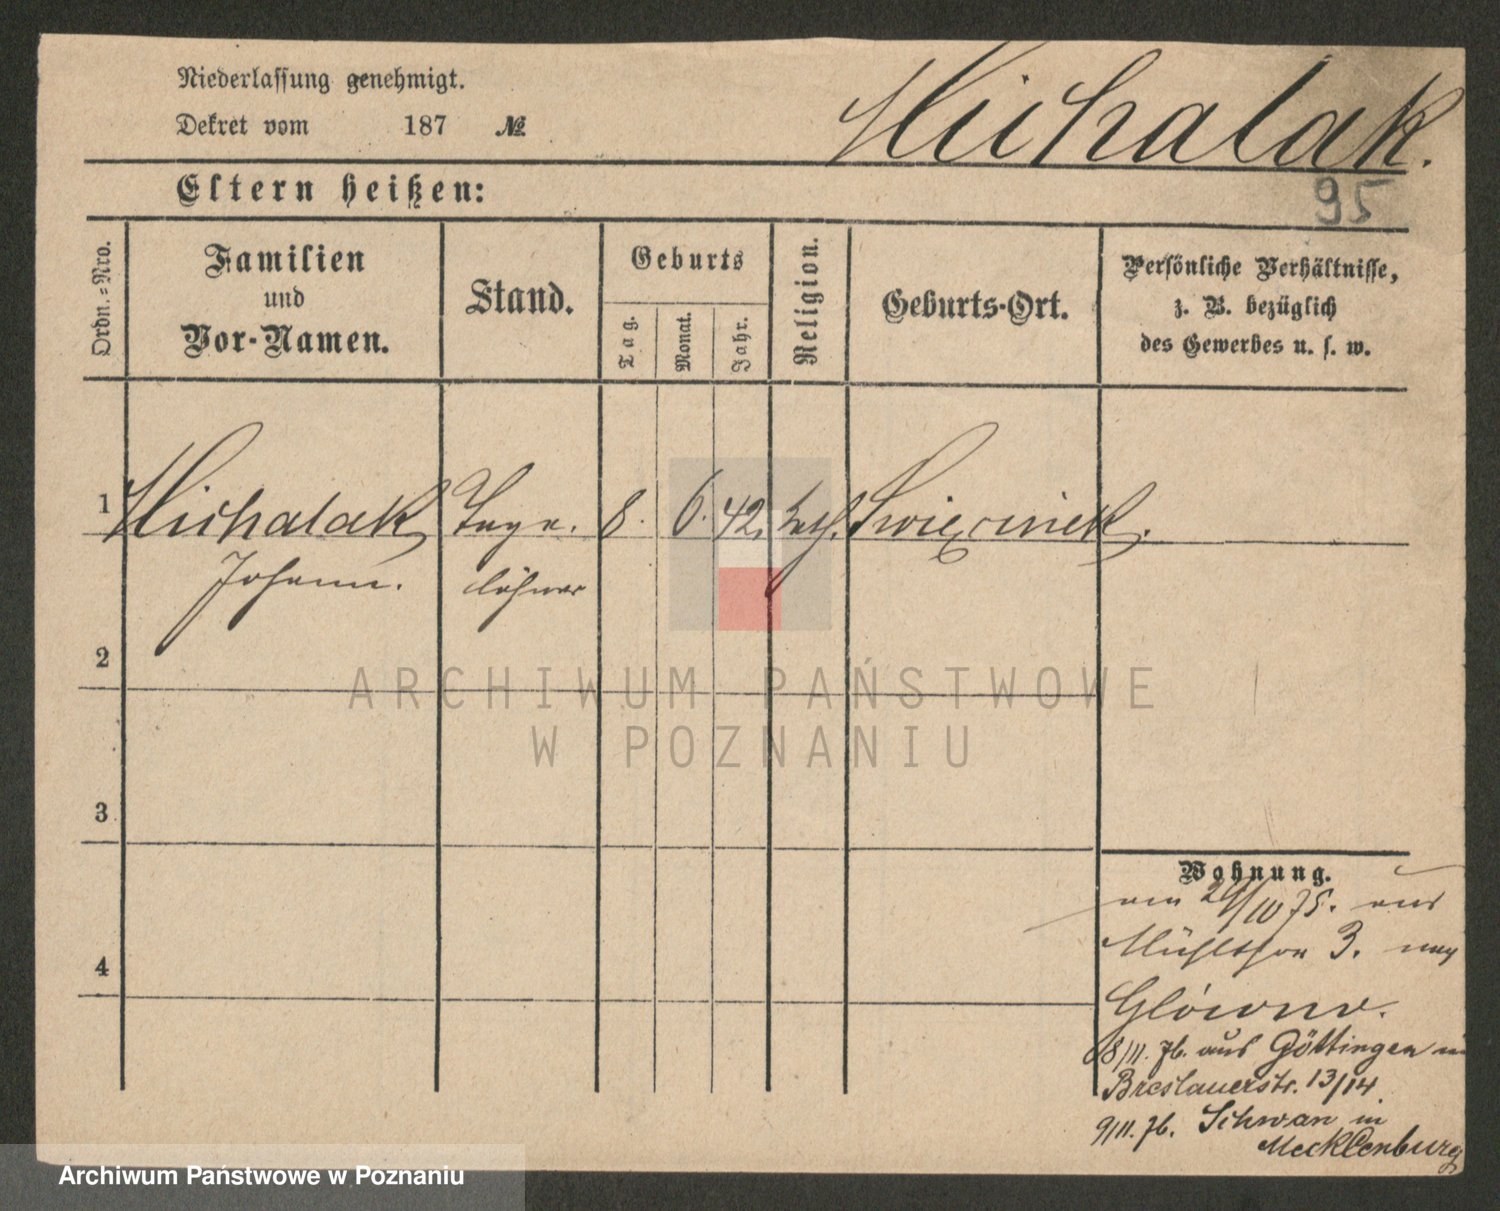 Niederlassung genehmigt.
Dekret vom 187 №
Michalak.
Eltern heißen:
95
Ordn.-Nro.
Familien
und
Vor-Namen.
Stand.
Geburts
Tag.
Monat.
Jahr.
Religion.
Geburts-Ort.
Persönliche Verhältnisse,
z. B. bezüglich
des Gewerbes u. s. w.
1 Michalak Tage. 8. 6. 42. kath. Święcinek.
Johann. löhner
2
3
4
ARCHIWUM PAŃSTWOWE
W POZNANIU
Wohnung.
am /10 75. aus
Mühlthor 3. nach
Główno.
8/11. 76. aus Göttingen in
Breslauerstr. 13/14.
9/11. 76. Schwan in
Mecklenburg
Archiwum Państwowe w Poznaniu